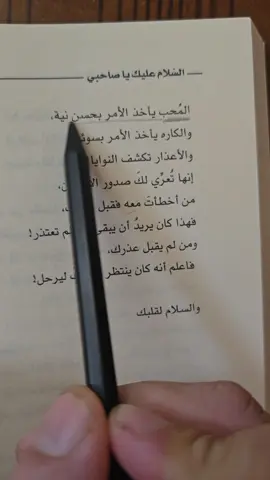 السّلام عليك يا صاحبي
المُحب يأخذ الأمر بحسن نية،
والكاره يأخذ الأمر بسوء
والأعذار تكشف النوايا
إنها تُعرِّي لكَ صدور
من أخطأتَ معه فقبل
فهذا كان يريدُ أن يبقى لم تعتذر!
ومن لم يقبل عذرك،
فاعلم أنه كان ينتظر ليرحل!
والسلام لقلبك